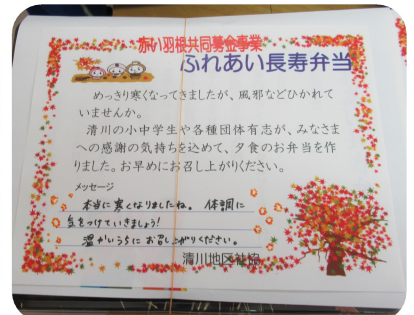 赤い羽根共同募金事業
ふれあい長寿弁当
めっきり寒くなってきましたが、風邪などひかれて
いませんか。
清川の小中学生や各種団体有志が、みなさま
への感謝の気持ちを込めて、夕食のお弁当を作
りました。お早めにお召し上がりください。
メッセージ
本当に寒くなりましたね。体調に
気をつけていきましょう!
温かいうちにお召し上がりください。
清川地区社協